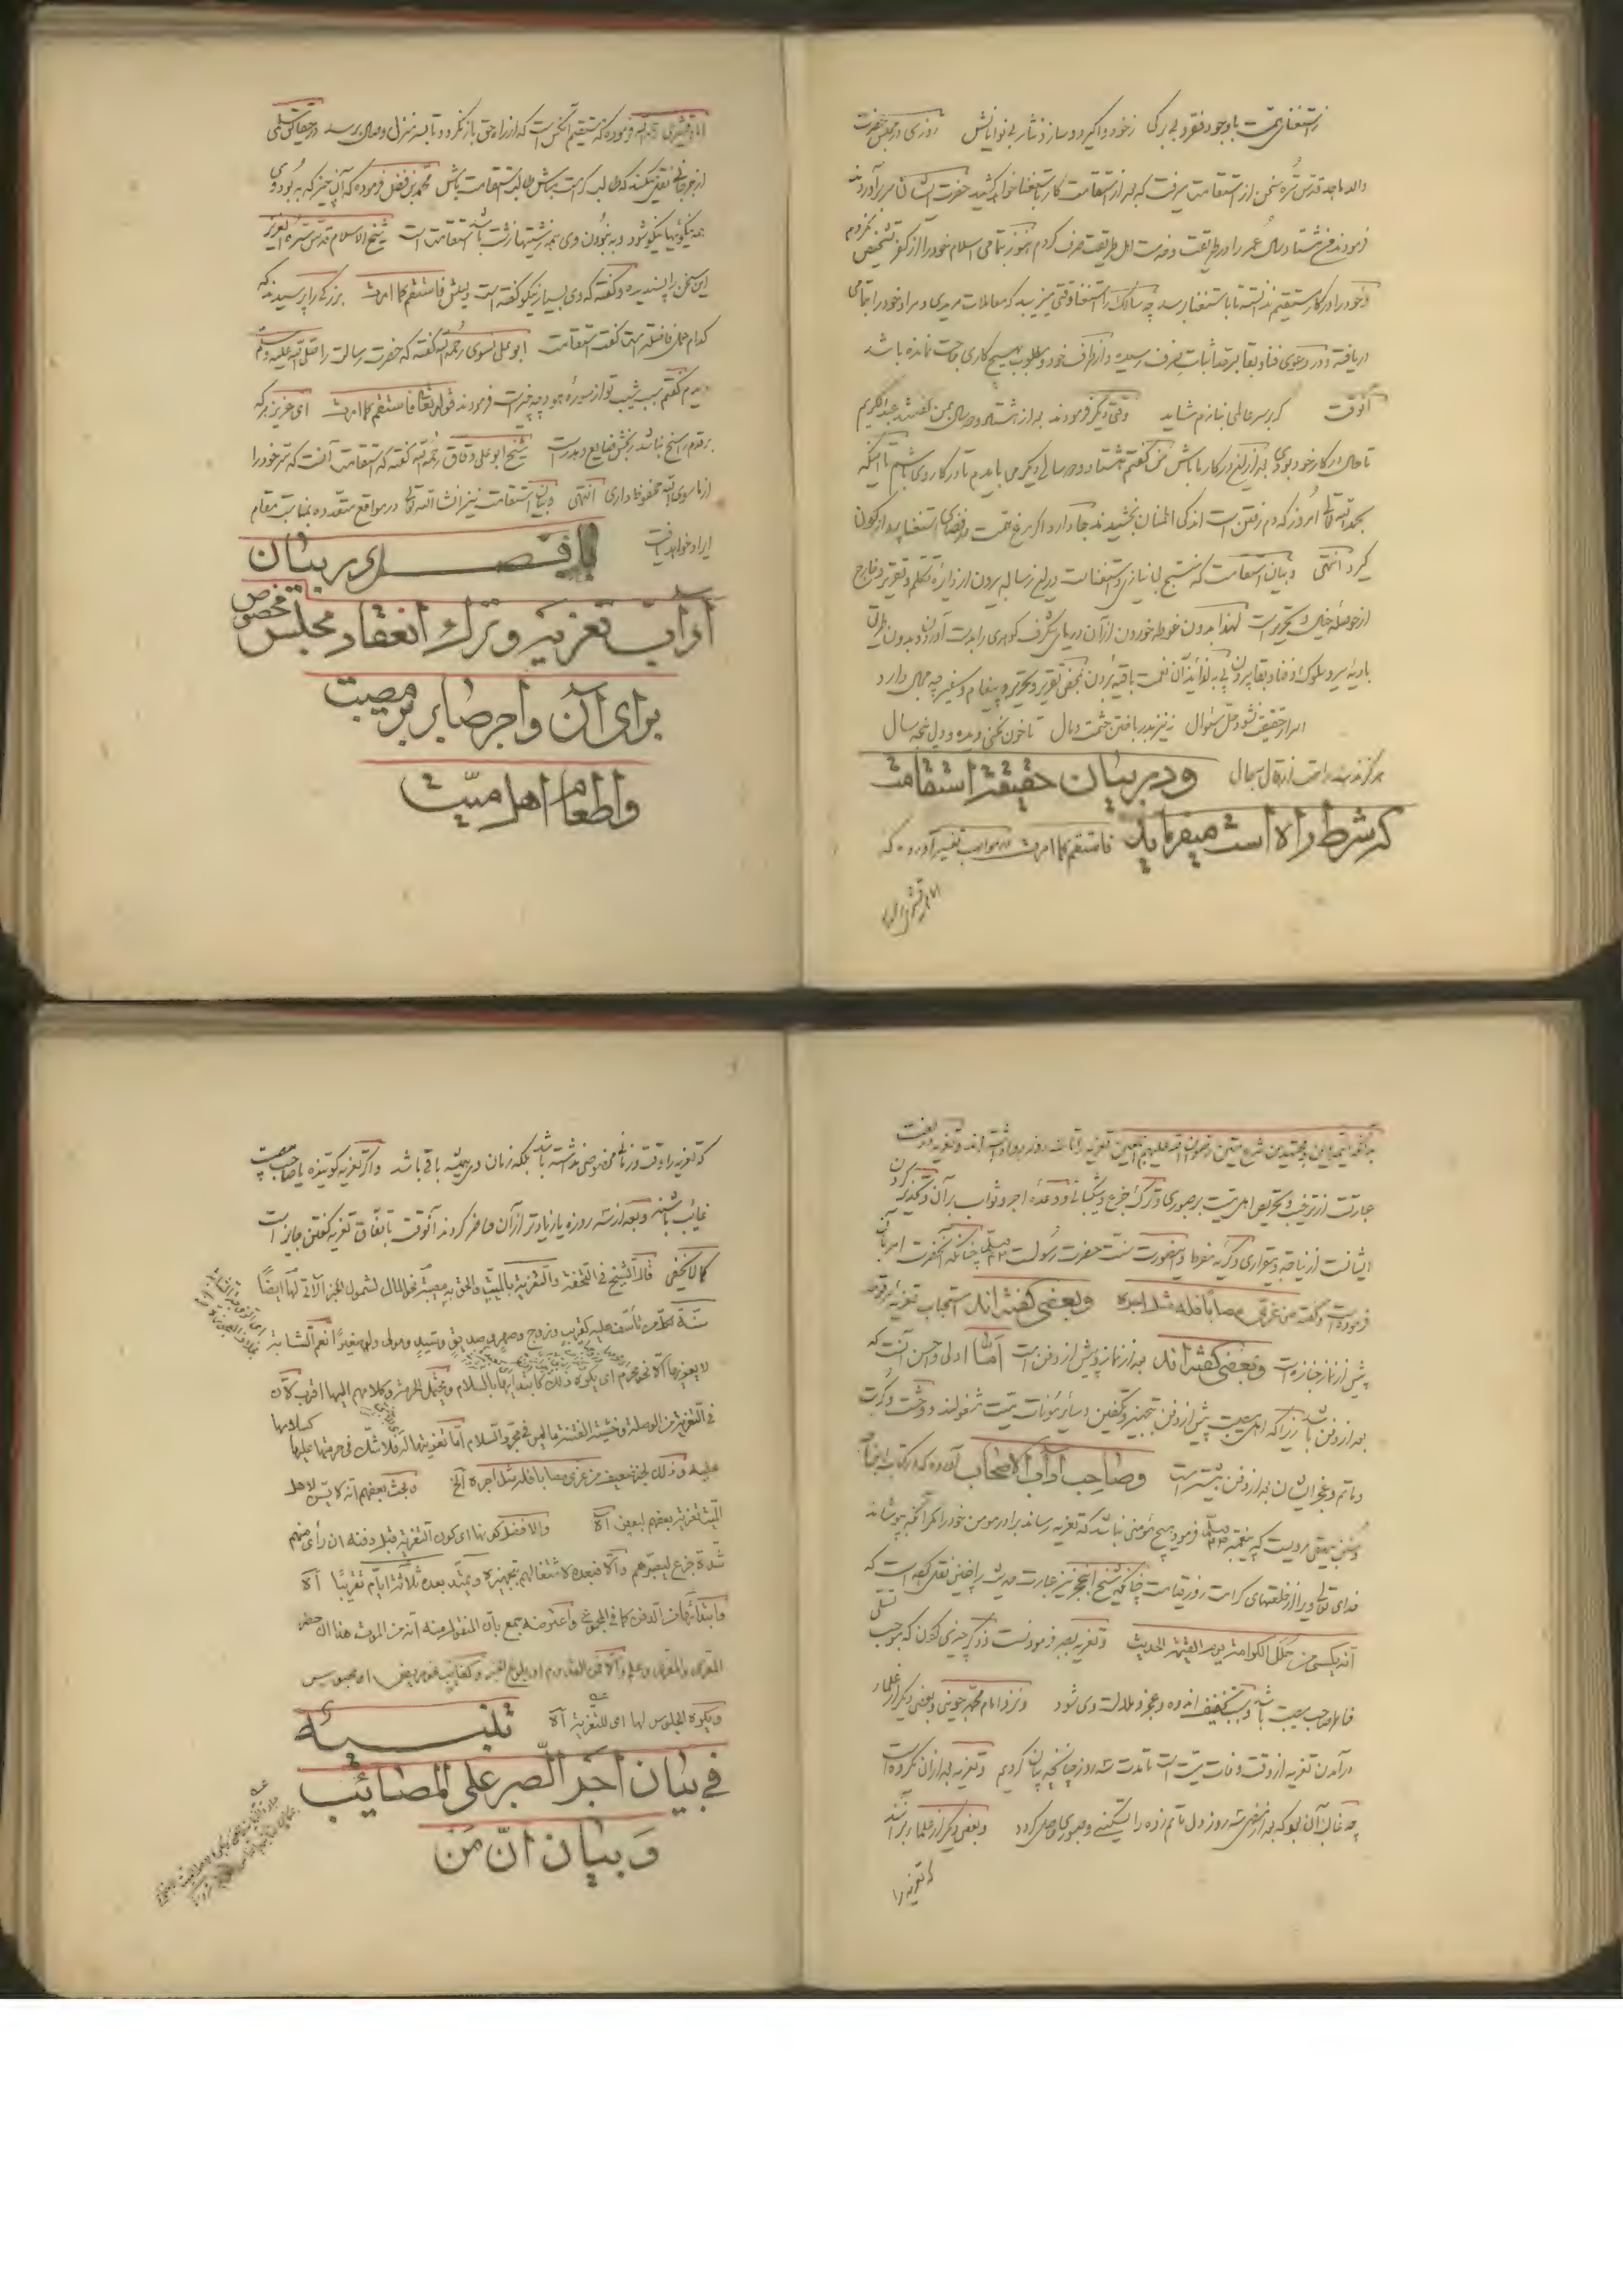 ز استغنای همت با وجود فقر و بی برگی ز خود واگیرد و سازد نثار بی نوایانش روزی در مجلس حضرت
والد ماجد قدس سره سخن از استقامت میرفت که بعد از استقامت کار باستغنا خواهد کشید حضرت ایشان سر برآوردند
فرمودند هشتاد سال عمر را در طریقت و خدمت اهل طریقت صرف کردم هنوز بتمامی اسلام خود را از کفر تشخیص نکردم
و خود را در کار مستقیم ندانسته تا باستغنا رسد چه سالک را استغنا وقتی میرسد که معاملات مریدی و مراد خود را بتمامی
دریافته و در دعوی فنا و بقا بر صد اثبات معرف رسیده و از طرف خود و مطلوب هیچ کاری و حاجت نمانده باشد
آنوقت که بر سر عالمی نیازم شاید وقتی دیگر فرمودند بعد از هشتاد و دو سال بمن گفتند عبدالکریم
تا حال در کار خود بودی بعد ازین در کار ما باش من گفتم هشتاد و دو سال دیگر می باید تا در کار وی باشم تا اینکه
بحمد الله تعالی امروز که دم رفتن است اندکی اطمینان بخشیدند جا دارد اگر مرغ همت در فضای استغنا پرواز کنون
کرد انتهی و بیان استقامت که منتج بی نیازی و استغنا است درین رساله بیرون از دایره تکلم و تقریر و خارج
از حوصله خیال و تحریر است لهذا بدون غوطه خوردن از آن دریای شگرف گوهری را بدست آوردن و بدون طی
بادیه سیر و سلوک و فنا و بقا پی بلذائذ آن نعمت باقیه بردن بمحض تقریر و تحریر و پیغام و سفیر چه مجال دارد
اسرار حقیقت نشود حل بسؤال نی نیز بدر باختن حشمت و مال تا خون نکنی دیده و دل پنجه سال
هرگز ندهندت راه از قال بحال ودر بیان حقیقة استقامت
که شرط راه است میفرماید فاستقم کما امرت در مواهب تفسیر آورده که
امام قشیری رحمه الله
امام قشیری رحمه الله فرموده که مستقیم آنکس است که از راه حق باز نگردد تا بسر منزل وصال برسد در حقایق سلمی
از جرجانی نقل میکند که طالب کرامت مباش طالب استقامت باش محمد بن فضل فرموده که آن چیز که به بود وی
همه نیکوئیها نیکو شود و به نبودن وی همه زشتیها زشت باشد استقامت است شیخ الاسلام قدس سره العزیز
این سخن را پسندیده و گفته که وی بسیار نیکو گفته است دلیلش فاستقم کما امرت بزرگی را پرسیدند که
کدام عمل فاضلتر است گفت استقامت ابو علی نسوی رحمه الله گفته که حضرت رسالت را صلی الله علیه وسلم
دیدم گفتم سبب شیب تو از سوره هود چه چیز است فرمودند قوله تعالی فاستقم کما امرت ای عزیز هر که
بر قدم راسخ نباشد رنجش ضایع و هدر است شیخ ابو علی دقاق رحمه الله گفته که استقامت آنست که سر خود را
از ما سوی الله محفوظ داری انتهی و بیان استقامت نیز انشاء الله تعالی در مواقع متعدده بمناسبت مقام
ایراد خواهد یافت بافصـــــل در بیان
آداب تعزیه و ترك انعقاد مجلس مخصوص
برای آن و اجر صابر بر مصیبت
و اطعام اهل میت
بدانکه ائمه دین و مجتهدین شرع متین رضوان الله علیهم اجمعین تعزیه را تا سه روز روا داشته اند و تعزیه در لغت
عبارت از ترغیب و تحریص اهل میت بر صبوری و ترك جزع و شکیبائی و وعده اجر و ثواب بر آن و تحذیر کردن
ایشانست از نیاحه و بیقراری و گریه مفرط و اینصورت سنت حضرت رسولست صلعم چنانکه آنحضرت امر بآن
فرموده است و گفته من عزی مصابا فله مثل اجره وبعضی گفته اند استحباب تعزیه
پیش از نماز جنازه است وبعضی گفته اند بعد از نماز و پیش از دفن است اما اولی و احسن آنست که
بعد از دفن باشد زیرا که اهل مصیبت پیش از دفن بتجهیز و تکفین و سائر مؤنات میت مشغولند و وحشت و کربت
و ماتم و عجز ایشان بعد از دفن بیشتر است وصاحب آداب الاصحاب آورده که
و سنن بیهقی مرویست که پیغمبر صلعم فرمود هیچ مؤمنی نباشد که تعزیه رساند برادر مومن خود را مگر آنکه بپوشاند
خدای تعالی ویرا از خلعتهای کرامت روز قیامت چنانکه شیخ ابن حجر نیز عبارت حدیث را چنین نقل کرده است که
انه یکسی من حلل الکرامة یوم القیمة الحدیث و تعزیه بصبر فرمودنست و ذکر چیزی کردن که موجب تسلی
خاطر صاحب مصیبت باشد و سبب تخفیف اندوه و عجز و ملالت وی شود و نزد امام محمد جوینی و بعضی دیگر از علماء
در آمدن تعزیه از وقت وفات میت است تا مدت سه روز چنانچه بیان کردیم و تعزیه بعد از آن مکروه است
چه غالب آن بود که بعد از مضی سه روز دل ماتم زده را تسکینی و صبوری حاصل گردد و بعضی دیگر از علما برآنند
که تعزیه را
که تعزیه را وقت و زمانی مخصوص نداشته باشد بلکه زمان در همیشه باقی باشد و اگر تعزیه گوینده یا صاحب مصیبت
غائب باشند و بعد از سه روزه یا زیادتر از آن حاضر گردند آنوقت باتفاق تعزیه گفتن جایز است
کما لا یخفی قال الشیخ فی التحفة والتعزیة بالمیت والحق به مصیبة نحو المال لشمول الخبر الآتی لها ایضًا
سنة لکل من تأسف علیه کقریب وزوج وصهر وصدیق وسید ومولی ولو صغیرًا نعم الشابة
لا یعزیها الا نحو محرم ای یکره ذلك کابتدائها بالسلام ویحتمل الحرمة وکلامهم الیها اقرب لان
فی التعزیة من الوصلة وخشیة الفتنة ما لیس فی مجرد السلام اما تعزیتها له فلا شك فی حرمتها علیها کسلامها
علیه وذلك لخبر ضعیف من عزی مصابا فله مثل اجره الخ وبحث بعضهم انه لا یسن لاهل
المیت تعزیة بعضهم لبعض اه والافضل کونها ای کون التعزیة قبل دفنه ان رأی منهم
شدة جزع لیصبرهم والا فبعده لاشتغالهم بتجهیزه ویمتد بعده ثلاثة ایام تقریبًا اه
وابتدائها من الدفن کما فی المجموع واعترضه جمع بان المنقول منه انه من الموت هذا ان حضر
المعزی والمعزی وعلم والا فمن القدوم او بلوغ الخبر
ویکره الجلوس لها ای للتعزیة اه تنبیــــه
فی بیان اجر الصبر علی المصائب
و بیان انّ من